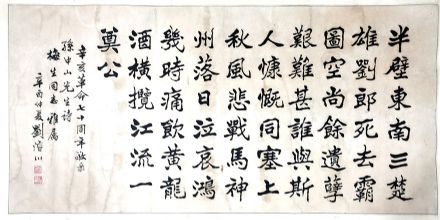 半壁東南三楚
雄劉郎死去霸
圖空尚餘遺孽
艱難甚誰與斯
人慷慨同塞上
秋風悲戰馬神
州落日泣哀鴻
幾時痛飲黃龍
酒橫攬江流一
奠公
辛亥革命七十周年敬录
孫中山先生詩
梅生同志雅屬
辛酉仲夏劉